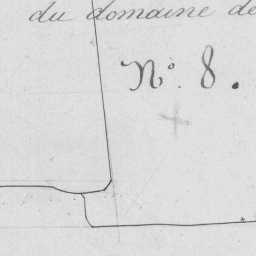 du domaine de
N° 8.